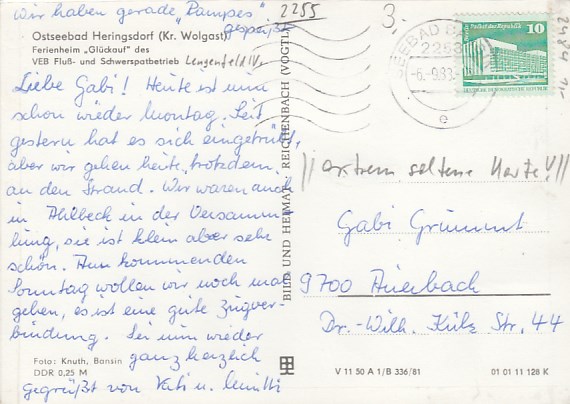 Wir haben gerade „Pampes“
gespeist
2255
3,-
Ostseebad Heringsdorf (Kr. Wolgast)
Ferienheim „Glückauf“ des
VEB Fluß- und Schwerspatbetrieb Lengenfeld/V.
Liebe Gabi! Heute ist nun
schon wieder Montag. Seit
gestern hat es sich eingetrübt,
aber wir gehen heute trotzdem
an den Strand. Wir waren auch
in Ahlbeck in der Versamm-
lung, sie ist klein aber sehr
schön. Am kommenden
Sonntag wollen wir noch mal
gehen, es ist eine gute Zugver-
bindung. Sei nun wieder
ganz herzlich
gegrüßt von Vati u. Mutti
Foto: Knuth, Bansin
DDR 0,25 M
BILD UND HEIMAT REICHENBACH (VOGTL)
SEEBAD
2255
-6.-9.83
e
Palast der Republik
10
DEUTSCHE DEMOKRATISCHE REPUBLIK
2484
1,-
!! extrem seltene Karte !!
Gabi Grummt
9700 Auerbach
Dr.-Wilh. Külz Str. 44
V 11 50 A 1/B 336/81
01 01 11 128 K